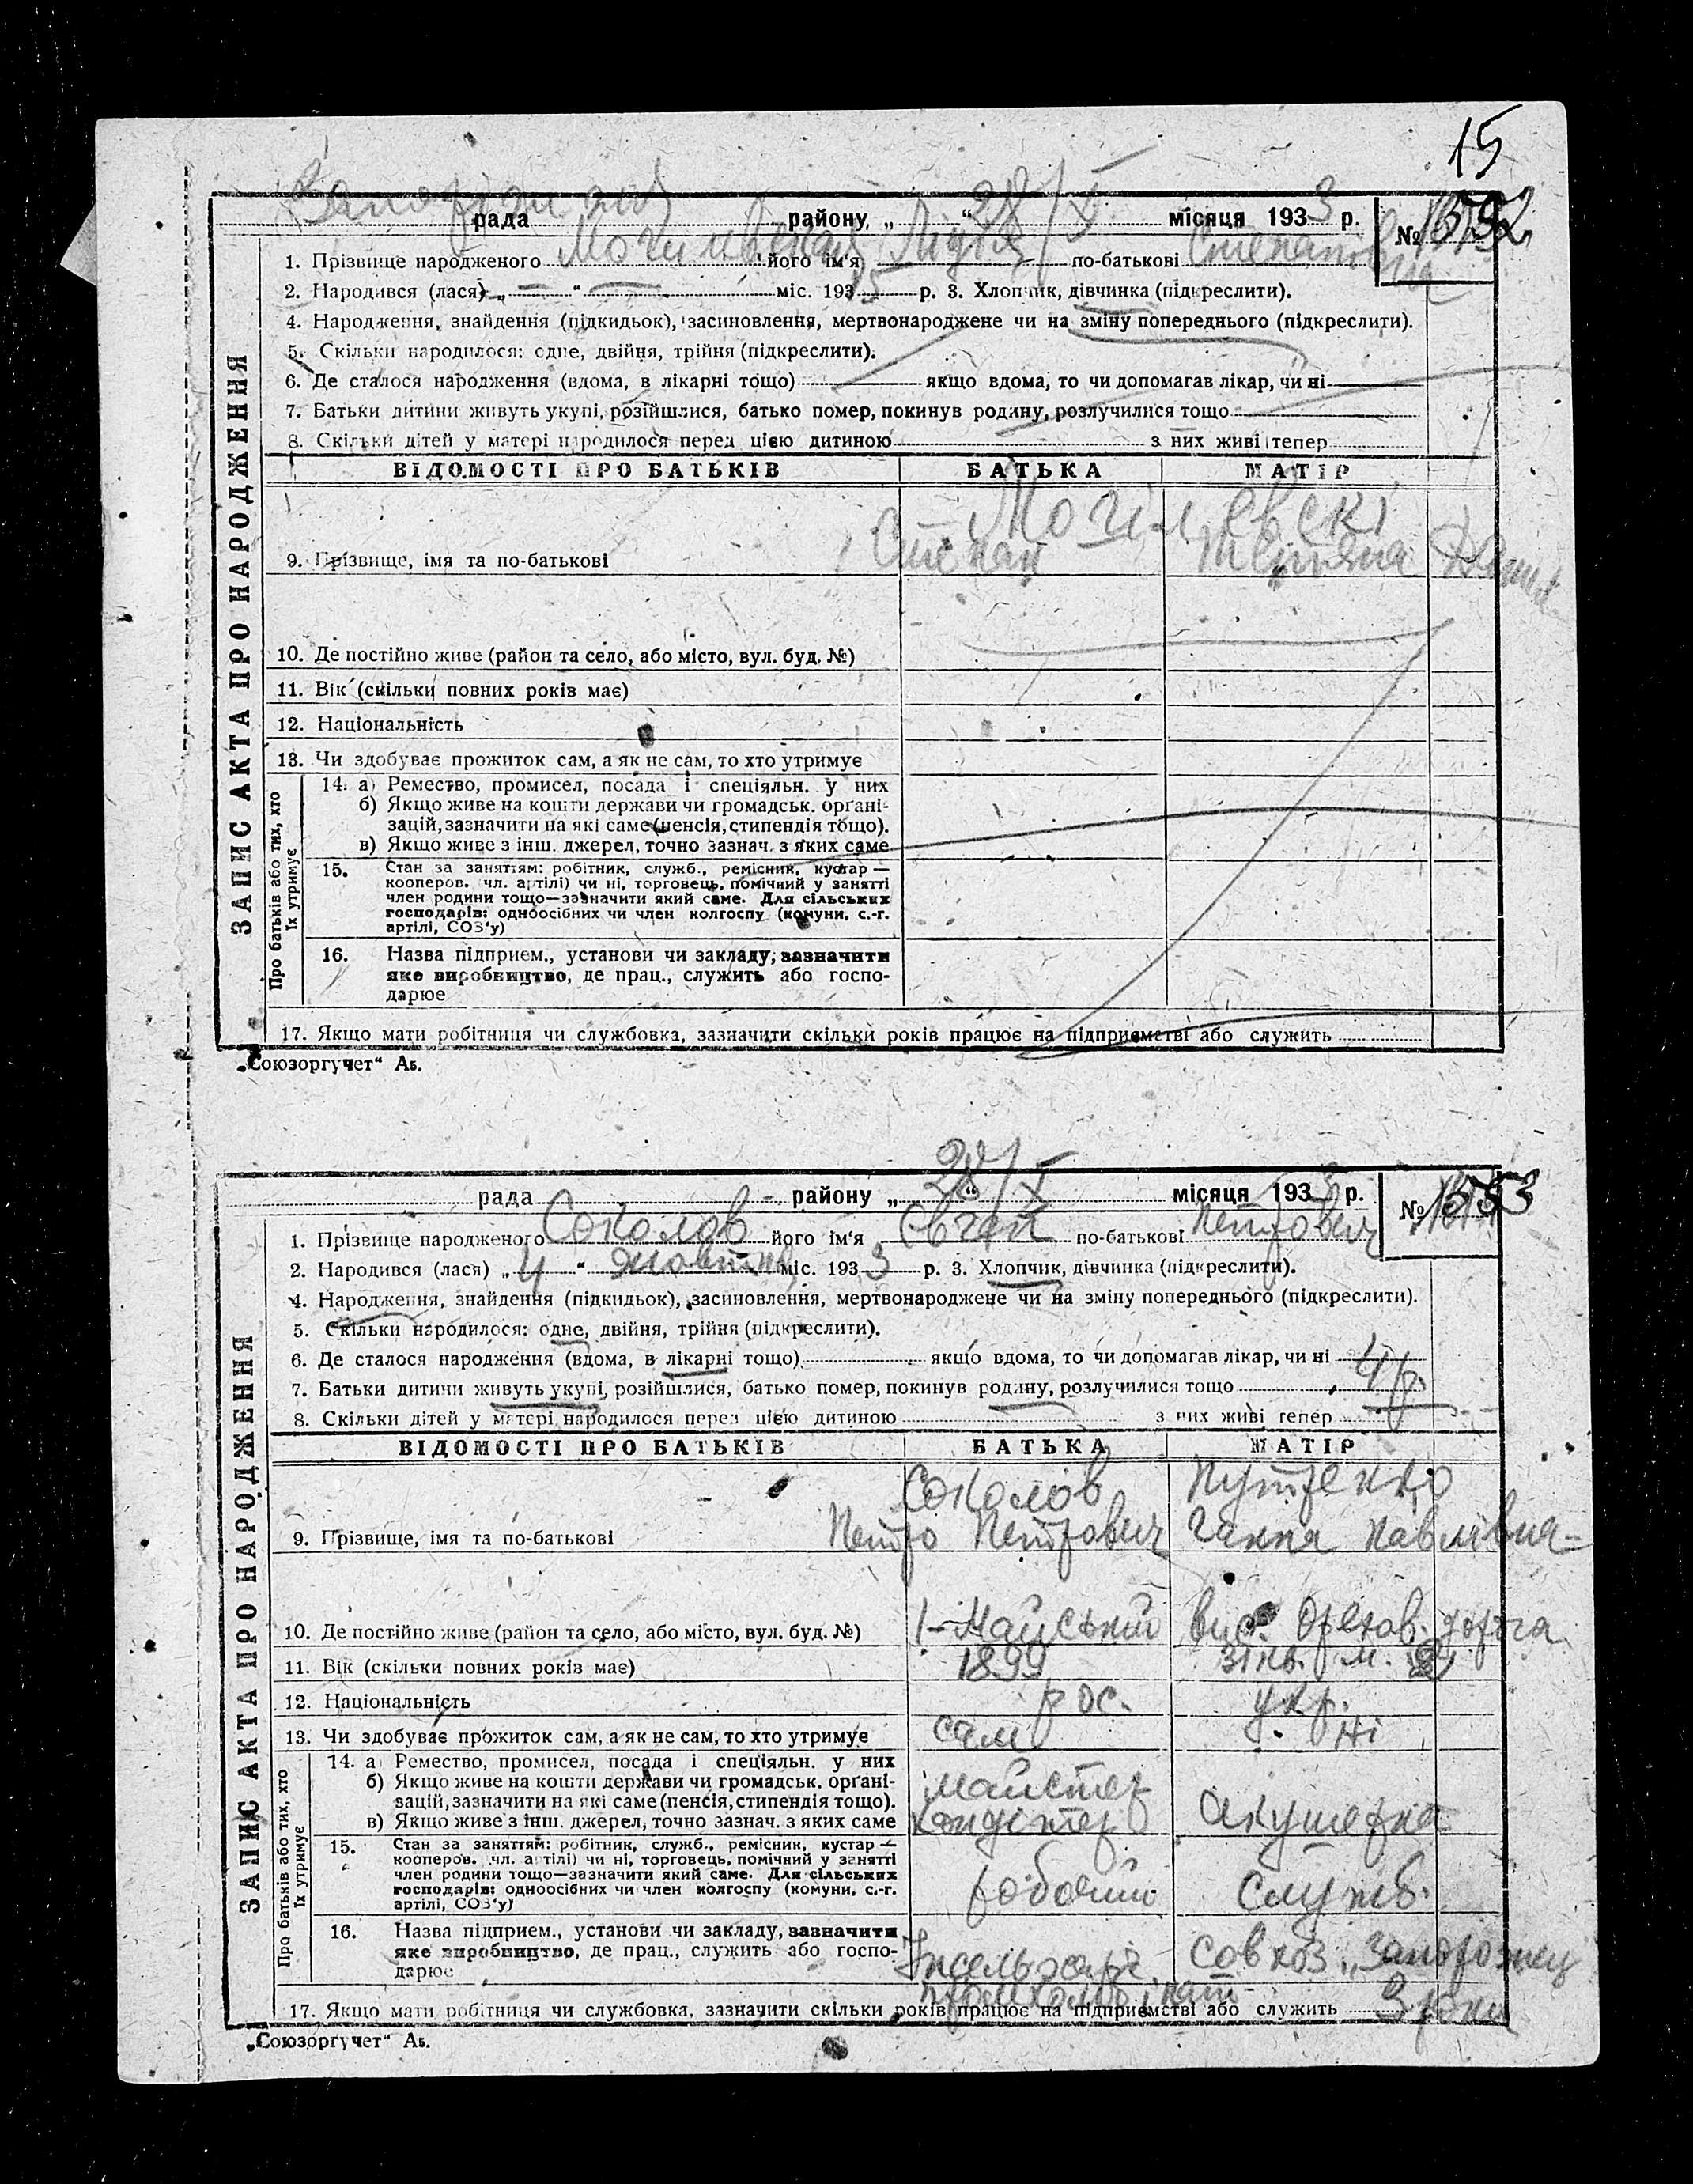 15
рада району „ 28/X “ місяця 1933 р. №
1. Прізвище народженого його ім'я Лідія по-батькові
2. Народився (лася) „ — “ — міс. 1935 р. 3. Хлопчик, дівчинка (підкреслити).
4. Народження, знайдення (підкидьок), засиновлення, мертвонароджене чи на зміну попереднього (підкреслити).
5. Скільки народилося: одне, двійня, трійня (підкреслити).
6. Де сталося народження (вдома, в лікарні тощо) якщо вдома, то чи допомагав лікар, чи ні
7. Батьки дитини живуть укупі, розійшлися, батько помер, покинув родину, розлучилися тощо
8. Скільки дітей у матері народилося перед цією дитиною з них живі тепер
ЗАПИС АКТА ПРО НАРОДЖЕННЯ
ВІДОМОСТІ ПРО БАТЬКІВ БАТЬКА МАТІР
Могілевскі
9. Прізвище, імя та по-батькові Степан Тетяна
10. Де постійно живе (район та село, або місто, вул. буд. №)
11. Вік (скільки повних років має)
12. Національність
13. Чи здобуває прожиток сам, а як не сам, то хто утримує
Про батьків або тих, хто їх утримує
14. а) Ремество, промисел, посада і спеціяльн. у них
б) Якщо живе на кошти держави чи громадськ. органі-
зацій, зазначити на які саме (пенсія, стипендія тощо).
в) Якщо живе з інш. джерел, точно зазнач. з яких саме
15. Стан за заняттям: робітник, служб., ремісник, кустар —
кооперов. чл. артілі) чи ні, торговець, помічний у занятті
член родини тощо—зазначити який саме. Для сільських
господарів: одноосібних чи член колгоспу (комуни, с.-г.
артілі, СОЗ'у)
16. Назва підприєм., установи чи закладу, зазначити
яке виробництво, де прац., служить або госпо-
дарює
17. Якщо мати робітниця чи службовка, зазначити скільки років працює на підприємстві або служить
„Союзоргучет“ Аб.
рада району „ 28/X “ місяця 1933 р. № 1553
1. Прізвище народженого Соколов його ім'я Євген по-батькові Петрович
2. Народився (лася) „ 4 “ жовтня міс. 1933 р. 3. Хлопчик, дівчинка (підкреслити).
4. Народження, знайдення (підкидьок), засиновлення, мертвонароджене чи на зміну попереднього (підкреслити).
5. Скільки народилося: одне, двійня, трійня (підкреслити).
6. Де сталося народження (вдома, в лікарні тощо) якщо вдома, то чи допомагав лікар, чи ні
7. Батьки дитини живуть укупі, розійшлися, батько помер, покинув родину, розлучилися тощо
8. Скільки дітей у матері народилося перед цією дитиною з них живі тепер
ЗАПИС АКТА ПРО НАРОДЖЕННЯ
ВІДОМОСТІ ПРО БАТЬКІВ БАТЬКА МАТІР
Соколов
9. Прізвище, імя та по-батькові Петро Петрович Ганна Павлівна
10. Де постійно живе (район та село, або місто, вул. буд. №) 1-Майський вис. Орехов. дорога
11. Вік (скільки повних років має) 1899
12. Національність рос. укр.
13. Чи здобуває прожиток сам, а як не сам, то хто утримує сам ні
Про батьків або тих, хто їх утримує
14. а) Ремество, промисел, посада і спеціяльн. у них
б) Якщо живе на кошти держави чи громадськ. органі-
зацій, зазначити на які саме (пенсія, стипендія тощо). майстер
в) Якщо живе з інш. джерел, точно зазнач. з яких саме кондітер акушерка
15. Стан за заняттям: робітник, служб., ремісник, кустар —
кооперов. чл. артілі) чи ні, торговець, помічний у занятті
член родини тощо—зазначити який саме. Для сільських
господарів: одноосібних чи член колгоспу (комуни, с.-г. робочий служб.
артілі, СОЗ'у)
16. Назва підприєм., установи чи закладу, зазначити
яке виробництво, де прац., служить або госпо- совхоз „Запорожец
дарює
17. Якщо мати робітниця чи службовка, зазначити скільки років працює на підприємстві або служить 3 роки
„Союзоргучет“ Аб.